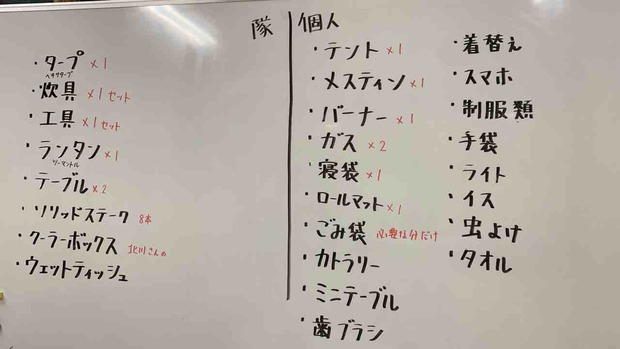 隊
・タープ ×1
ヘキサタープ
・炊具 ×1セット
・工具 ×1セット
・ランタン ×1
ツーマントル
・テーブル ×2
・ソリッドステーク 8本
・クーラーボックス 北川さんの
・ウェットティッシュ
個人
・テント ×1
・メスティン ×1
・バーナー ×1
・ガス ×2
・寝袋 ×1
・ロールマット ×1
・ごみ袋 必要な分だけ
・カトラリー
・ミニテーブル
・歯ブラシ
・着替え
・スマホ
・制服類
・手袋
・ライト
・イス
・虫よけ
・タオル